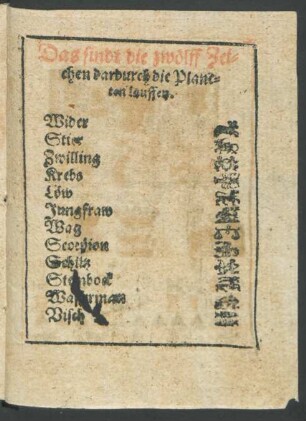 Das sindt die zwölff Zei-
chen dardurch die Plane-
ten lauffen.
Wider
Stier
Zwilling
Krebs
Löw
Jungfraw
Wag
Scorpion
Schütz
Steinbock
Wasserman
Visch